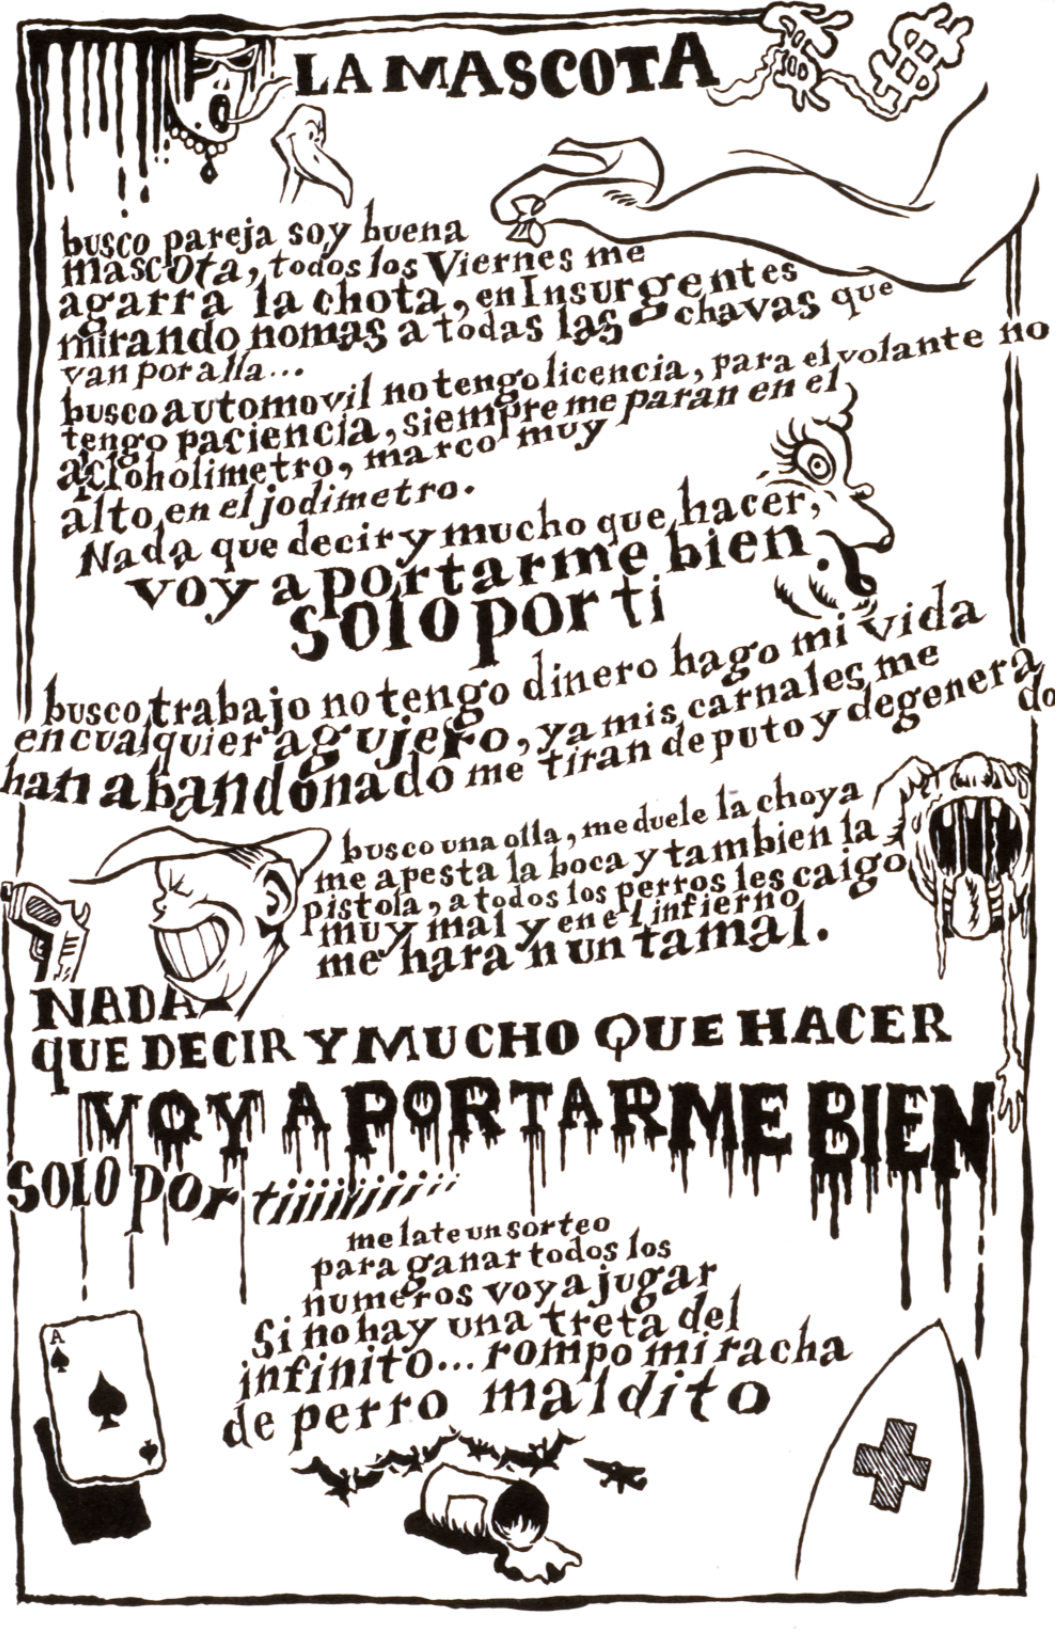 LA MASCOTA
busco pareja soy buena
mascota, todos los Viernes me
agarra la chota, en Insurgentes
mirando nomas a todas las chavas que
van por alla...
busco automovil no tengo licencia, para el volante no
tengo paciencia, siempre me paran en el
alcoholimetro, marco muy
alto en el jodimetro.
Nada que decir y mucho que hacer,
voy a portarme bien
solo por ti
busco trabajo no tengo dinero hago mi vida
en cualquier agujero, ya mis carnales me
han abandonado me tiran de puto y degenera
do
busco una olla, me duele la choya
me apesta la boca y tambien la
pistola, a todos los perros les caigo
muy mal y en el infierno
me haran un tamal.
NADA
QUE DECIR Y MUCHO QUE HACER
VOY A PORTARME BIEN
SOLO POR tiiiiiiiiii
me late un sorteo
para ganar todos los
numeros voy a jugar
Si no hay una treta del
infinito... rompo mi racha
de perro maldito
A